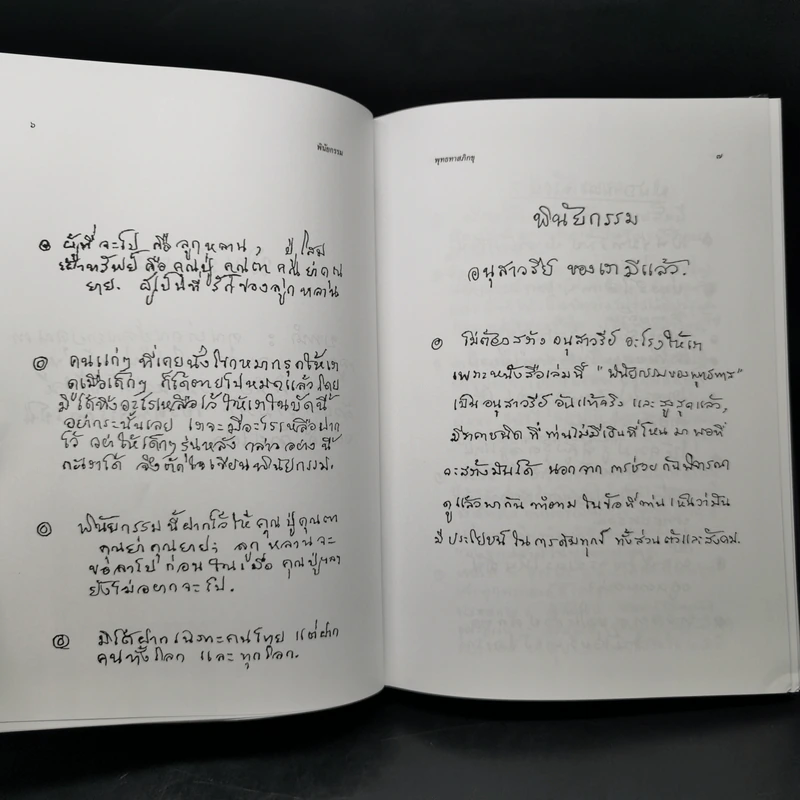 ๖
พินัยกรรม
ผู้ที่จะไป คือ ลูกหลาน, ผู้โสม
เฝ้าทรัพย์ คือ คุณปู่ คุณตา คุณย่าคุณ
ยาย. ผู้เป็นที่รักของลูกหลาน
คนแก่ๆ ที่เคยนั่งโขกหมากรุกให้เรา
ดูเมื่อเด็กๆ ก็ได้ตายไปหมดแล้วโดย
มิได้ทิ้งอะไรเหลือไว้ให้เราในบัดนี้
อย่ากระนั้นเลย เราจะมีอะไรเหลือฝาก
ไว้ อย่าให้เด็กๆรุ่นหลัง กล่าวอย่างนี้
กะเราได้ จึงตัดใจเขียนพินัยกรรม.
พินัยกรรมนี้ฝากไว้ให้ คุณปู่คุณตา
คุณย่าคุณยาย; ลูกหลานจะ
ขอลาไปก่อน ในเมื่อ คุณปู่ฯลฯ
ยังไม่อยากจะไป.
มิได้ฝากเฉพาะคนไทย แต่ฝาก
คนทั้งโลก และทุกโลก.
พุทธทาสภิกขุ
๗
พินัยกรรม
อนุสาวรีย์ ของเรามีแล้ว.
ไม่ต้องสร้าง อนุสาวรีย์ อะไรให้เรา
เพราะหนังสือเล่มนี้ "พินัยกรรมของพุทธทาส"
เป็น อนุสาวรีย์ อันแท้จริง และ สูงสุดแล้ว,
มีราคาชนิด ที่ ท่านไม่มีเงินที่ไหน มา พอที่
จะสร้างมันได้ นอกจาก การช่วย กันพิจารณา
ดูแล้วพากัน ทำตาม ในข้อที่ท่าน เห็นว่ามัน
มี ประโยชน์ ใน การดับทุกข์ ทั้งส่วน ตัวและสังคม.